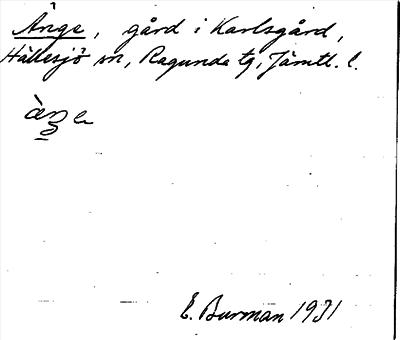 Ånge, gård i Karlsgård,
Hällesjö sn, Ragunda tg, Jämtl. l.
E. Burman 1931